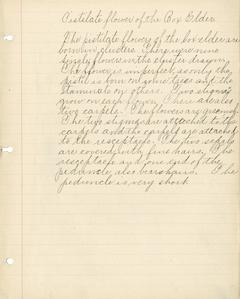 Pistilate flower of the Box Elder
The pistilate flowers of the box elder are
borne in clusters. There were nine
single flowers in the cluster drawn.
The flower is imperfect, as only the
pistil is born on some trees and the
staminate on others. Two stigmas
grow on each flower. There are also
two carpels. The flowers are green
The two stigmas are attached to the
carpels and the carpels are attached
to the receptacle. The two sepals
are covered with fine hairs. The
receptacle and one end of the
peduncle, also bears hairs. The
peduncle is very short